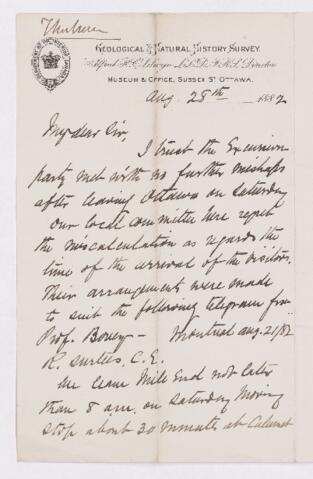 Geological & Natural History Survey.
Alfred R. C. Selwyn, L.L.D., F.R.S., Director
Museum & Office, Sussex St. Ottawa.
Aug 28th 1882
My dear Sir,
I trust the Excursion
party met with no further mishaps
after leaving Ottawa on Saturday
Our local committee here regret
the miscalculation as regards the
time of the arrival of the visitors.
Their arrangements were made
to suit the following telegram from
Prof. Bovey — Montreal Aug. 21/82
R. Surtees, C. E.
We leave Mile End not later
than 8 a.m. on Saturday morning
stop about 30 minutes at Calumet